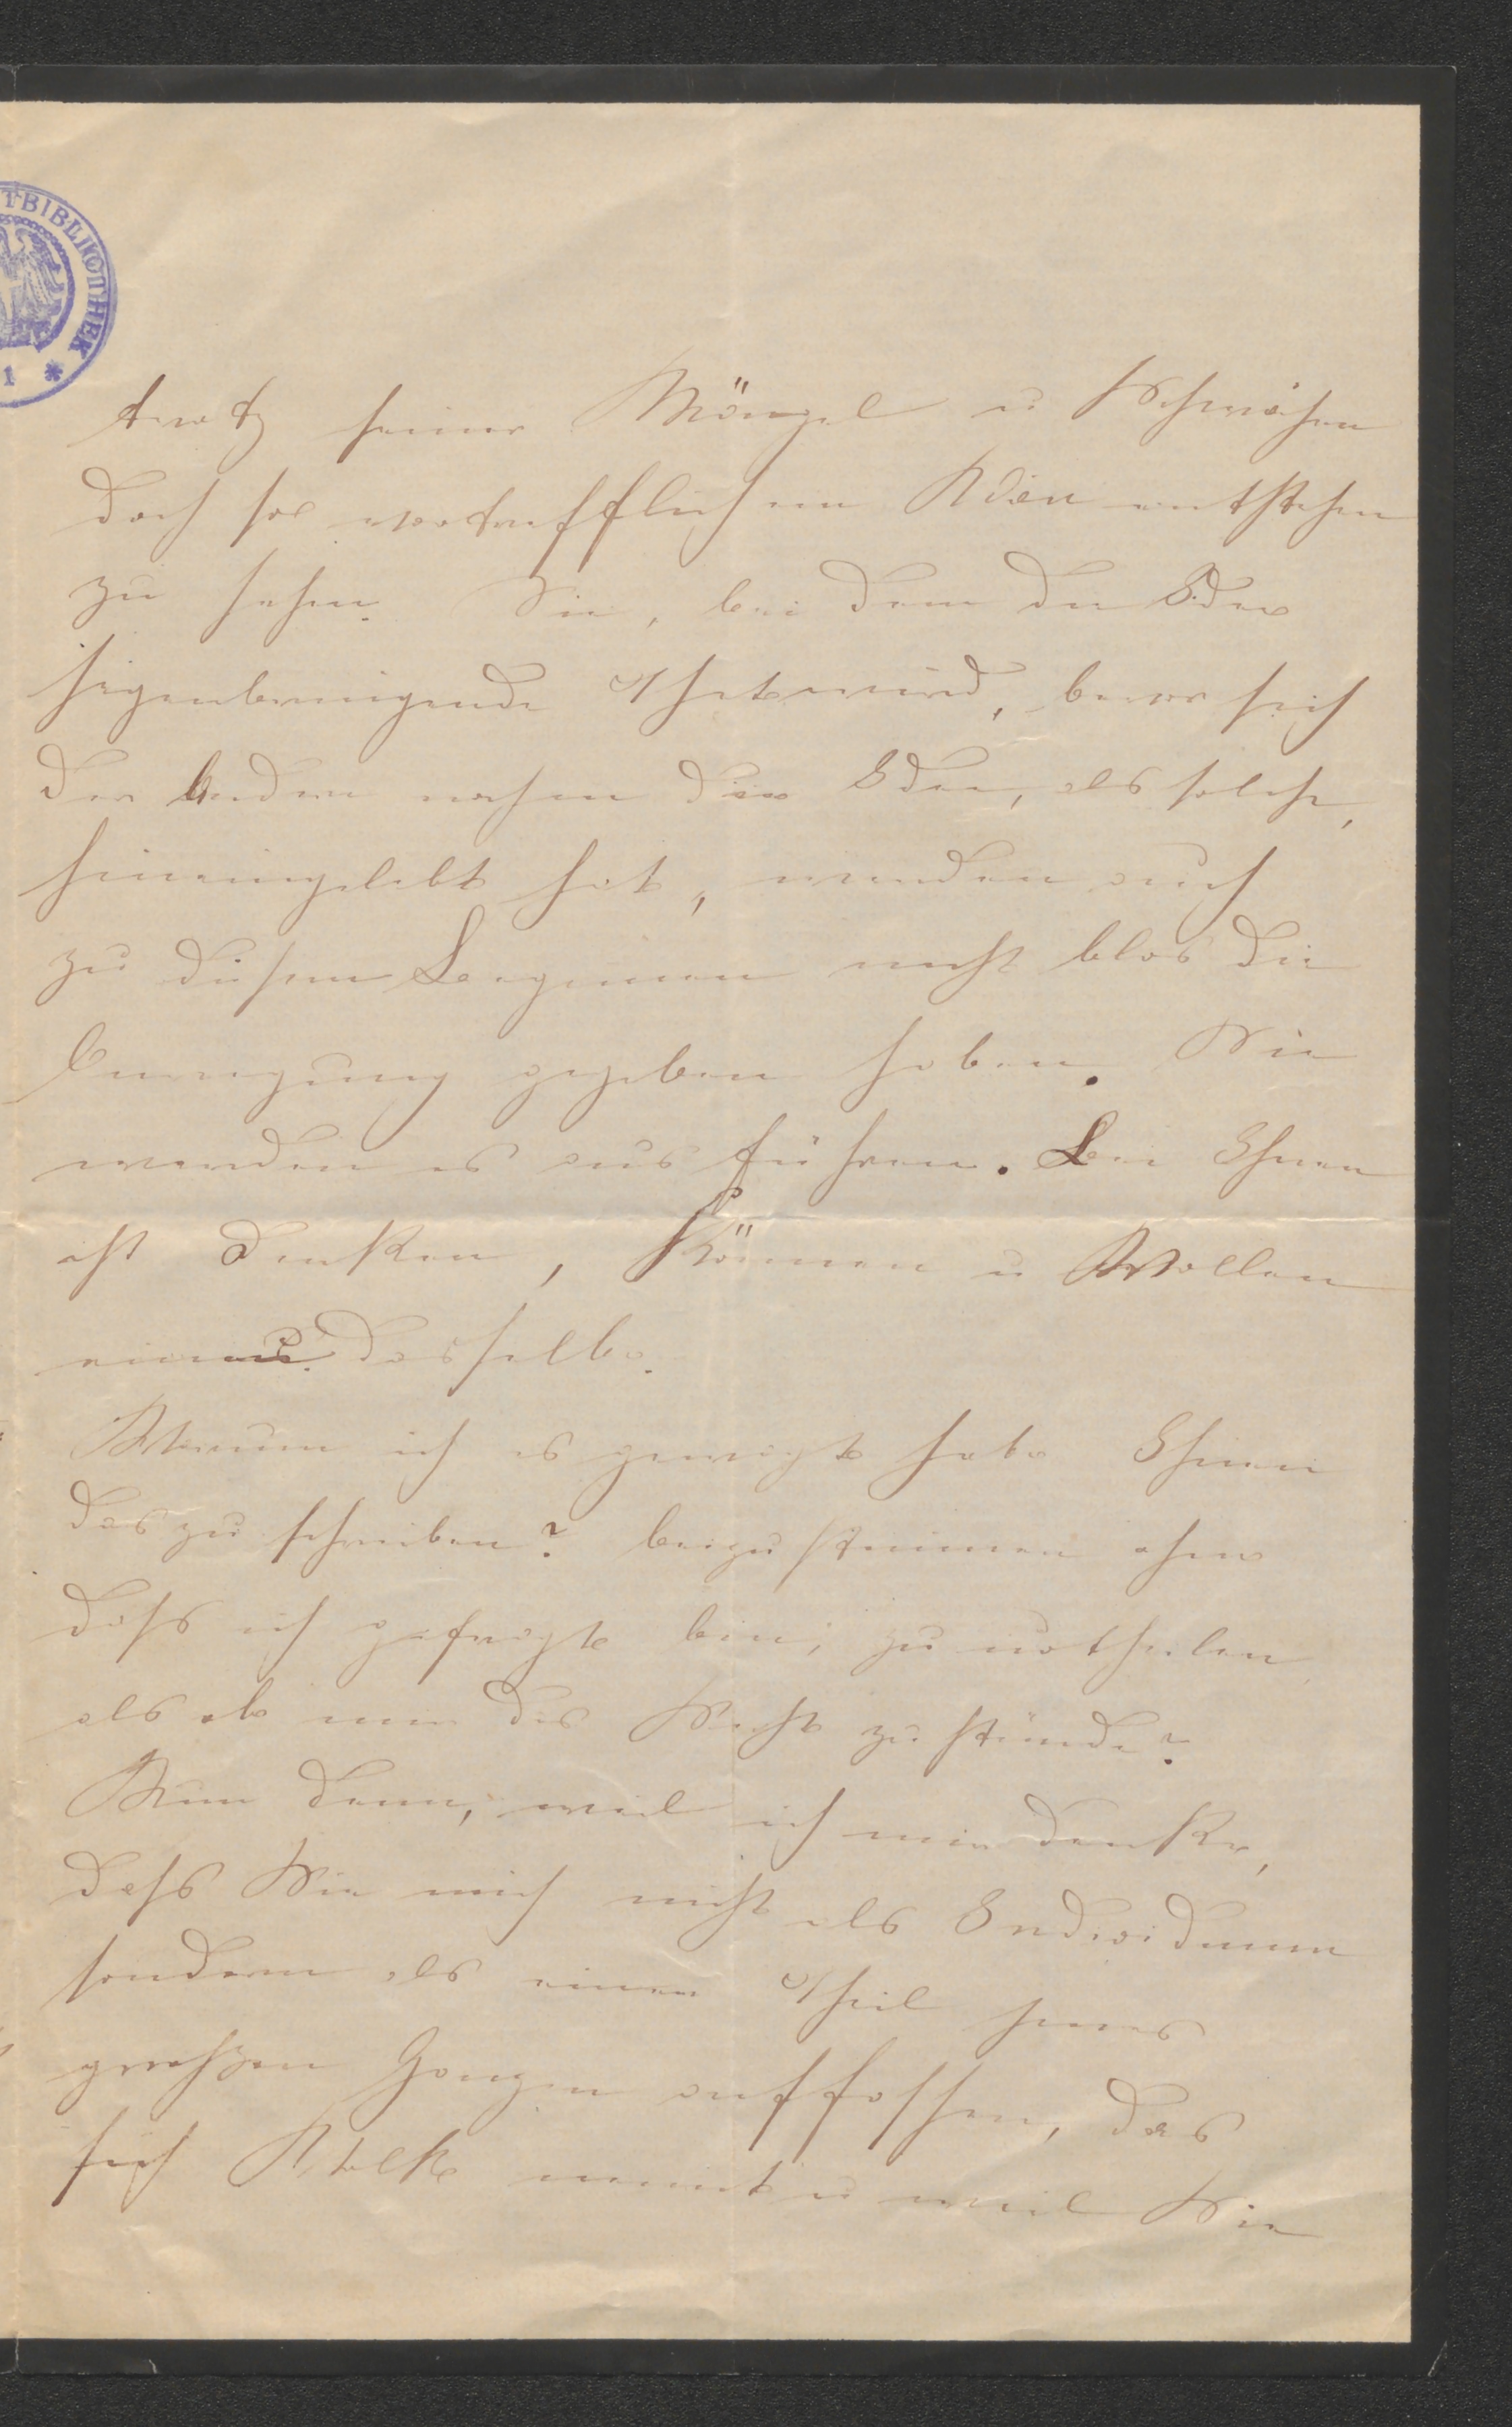 TBIBLIOTHEK
1 *
trotz seiner Mängel u Schwächen
doch so vortrefflichem Wien entstehen
zu sehen. Sie, bei dem die Idee
segenbringende That wird, bevor sich
der Andere noch in die Idee, als solche,
hineingelebt hat, werden auch
zu diesem Beginnen nicht blos die
Anregung gegeben haben. Sie
werden es ausführen. Bei Ihnen
ist Denken, Können u Wollen
eines. dasselbe.
Warum ich es gewagt habe Ihnen
das zu schreiben? beizustimmen ohne
dass ich gefragt bin; zu urtheilen
als ob mir das Recht zustünde?
Nun denn, weil ich mir denke,
dass Sie mich nicht als Individuum
sondern als einen Theil jenes
großen Ganzen auffassen, das
sich Volk nennt u weil Sie